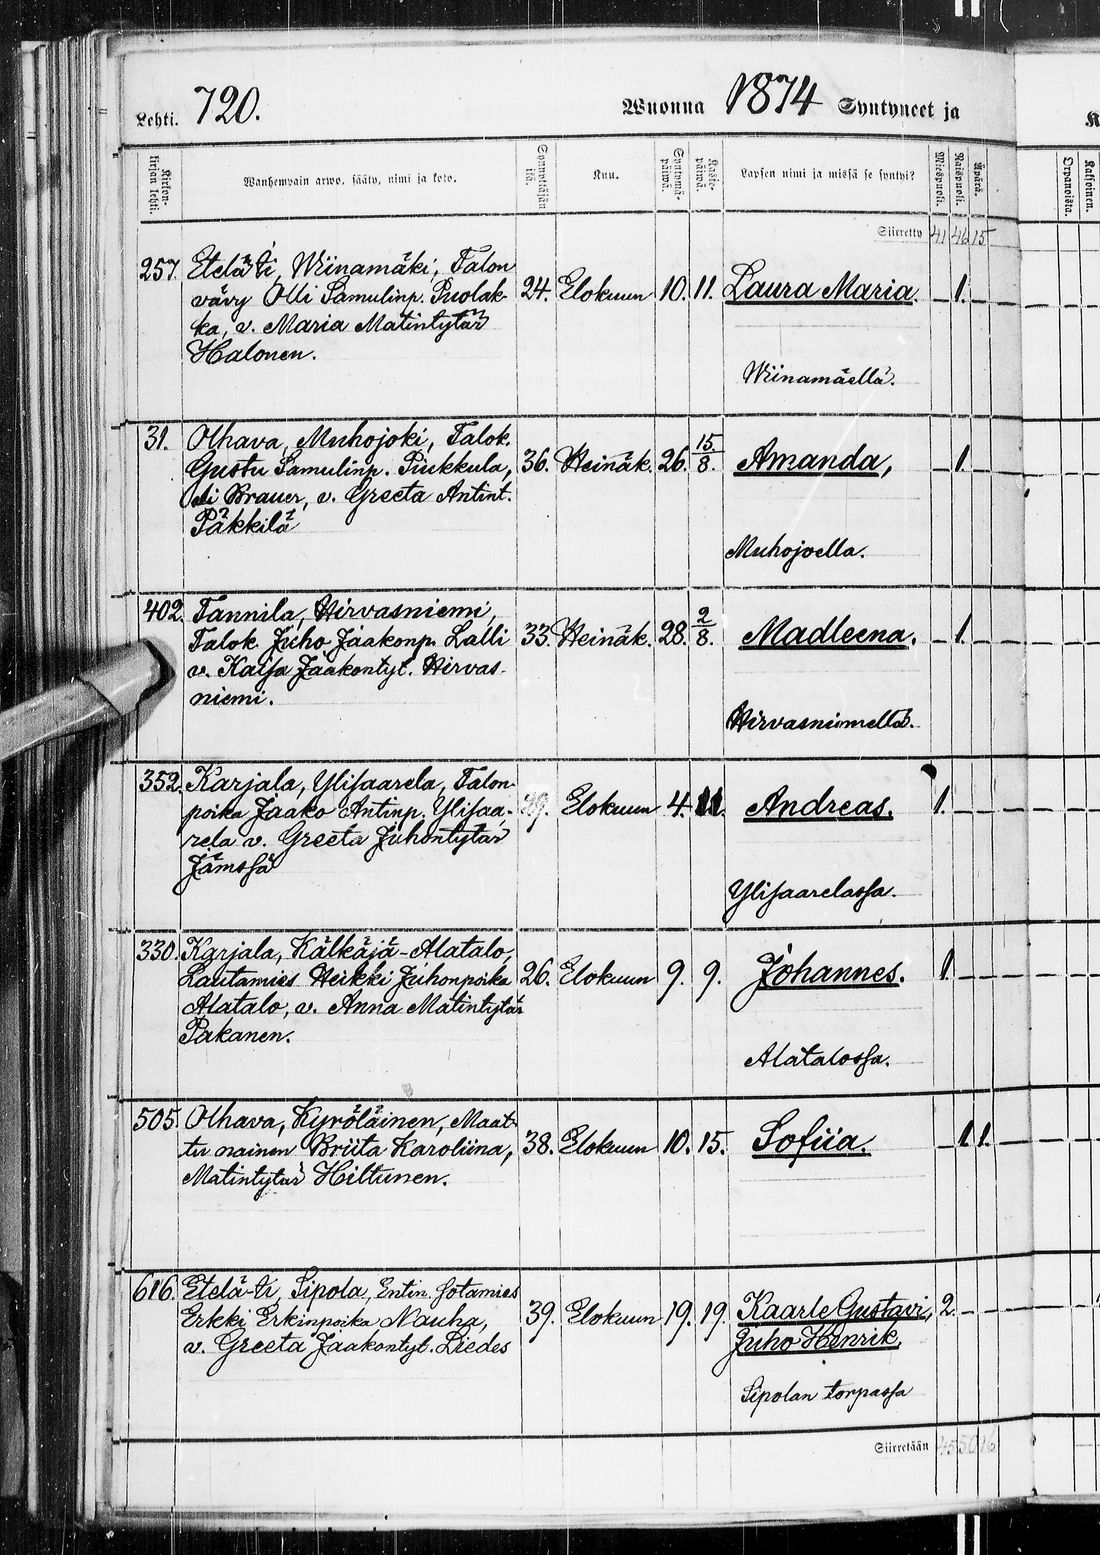 Lehti. 720. Wuonna 1874 Syntyneet ja
Kirkon-kirjan lehti. Wanhempain arwo, sääty, nimi ja koto. Synnyttäjän ikä. Kuu. Syntymä-päiwä. Kaste-päiwä. Lapsen nimi ja missä se syntyi? Miespuoli. Naispuoli. Äpärä. Orpanoista. Kaksoinen.
Siirretty 41 46 15
257. Etelä-Ii, Wiinamäki, Talon
vävy Olli Samulinp. Puolak- 24. Elokuun 10. 11. Laura Maria. 1.
ka, v. Maria Matintytär
Halonen.
Wiinamäellä.
31. Olhava, Muhojoki, Talok.
Gustu Samulinp. Piukkula, 36. Heinäk. 26. 15/8. Amanda, 1.
eli Brauer, v. Greeta Antint.
Päkkilä
Muhojoella.
402. Tannila, Hirvasniemi,
Talok. Juho Jaakonp. Lalli 33. Heinäk. 28. 2/8. Madleena. 1.
v. Kaisa Jaakontyt. Hirvas-
niemi.
Hirvasniemellä.
352. Karjala, Ylisaarela, Talon-
poika Jaako Antinp. Ylisaa- Elokuun 4. 11. Andreas. 1.
rela v. Greeta Juhontytär
Jämssä
Ylisaarelassa.
330. Karjala, Kälkäjä-Alatalo,
Lautamies Heikki Juhonpoika 26. Elokuun 9. 9. Johannes. 1.
Alatalo, v. Anna Matintytär
Pakanen.
Alatalossa.
505. Olhava, Kyröläinen, Maat-
tu nainen Briita Karoliina, 38. Elokuun 10. 15. Sofiia. 1 1.
Matintytär Hiltunen.
616. Etelä-Ii, Sipola, Entin. sotamies
Erkki Erkinpoika Nauha, 39. Elokuun 19. 19. Kaarle Gustavi, 2.
v. Greeta Jaakontyt. Liedes Juho Henrik.
Sipolan torpassa
Siirretään 45 50 16